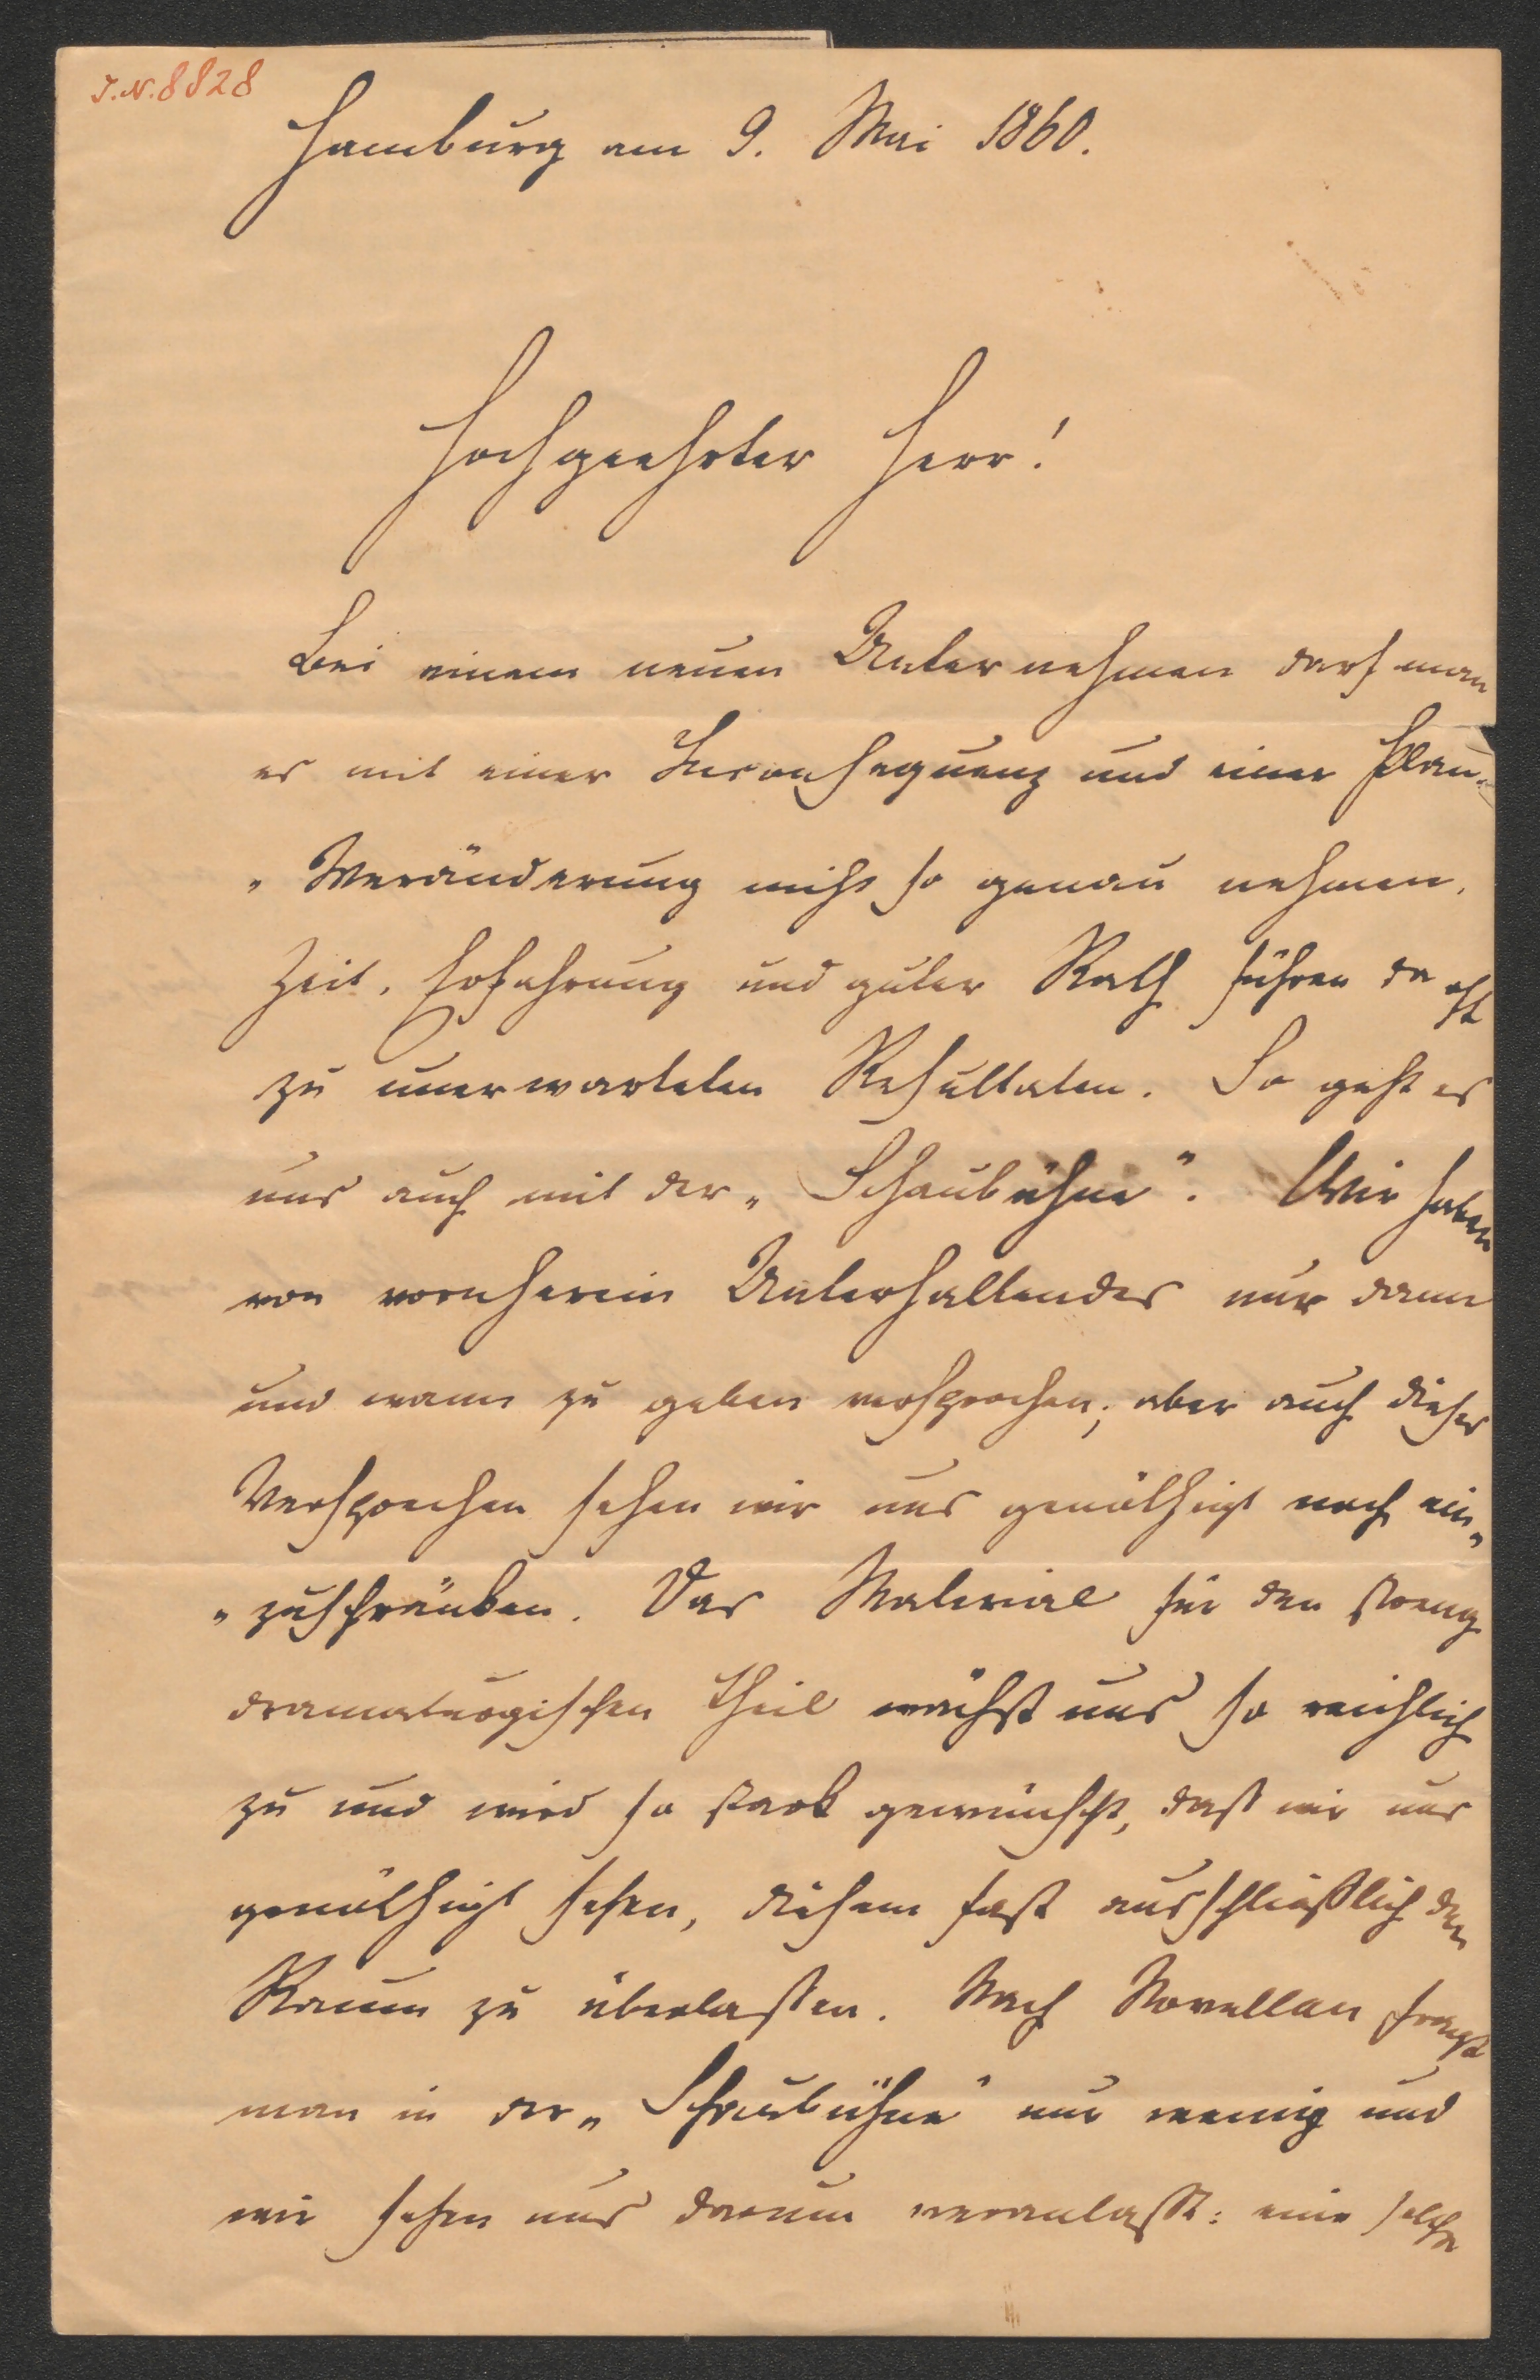 J.N. 8828
Hamburg am 9. Mai 1860.
Hochgeehrter Herr!
Bei einem neuen Unternehmen darf man
es mit einer Inconsequenz und einer Plan-
„Veränderung nicht so genau nehmen.
Zeit, Erfahrung und guter Rath führen da oft
zu unerwarteten Resultaten. So geht es
uns auch mit der „Schaubühne“. Wir haben
von vornherein Unterhaltendes nur dann
und wann zu geben versprochen; aber auch dieses
Versprechen sehen wir uns genöthigt noch ein„
„zuschränken. Das Material für den streng
dramaturgischen Theil wächst uns so reichlich
zu und wird so stark gewünscht, daß wir uns
genöthigt sehen, diesem fast ausschließlich den
Raum zu überlassen. Nach Novellen fragt
man in der „Schaubühne“ nur wenig und
wir sehen uns darum veranlaßt: eine solche